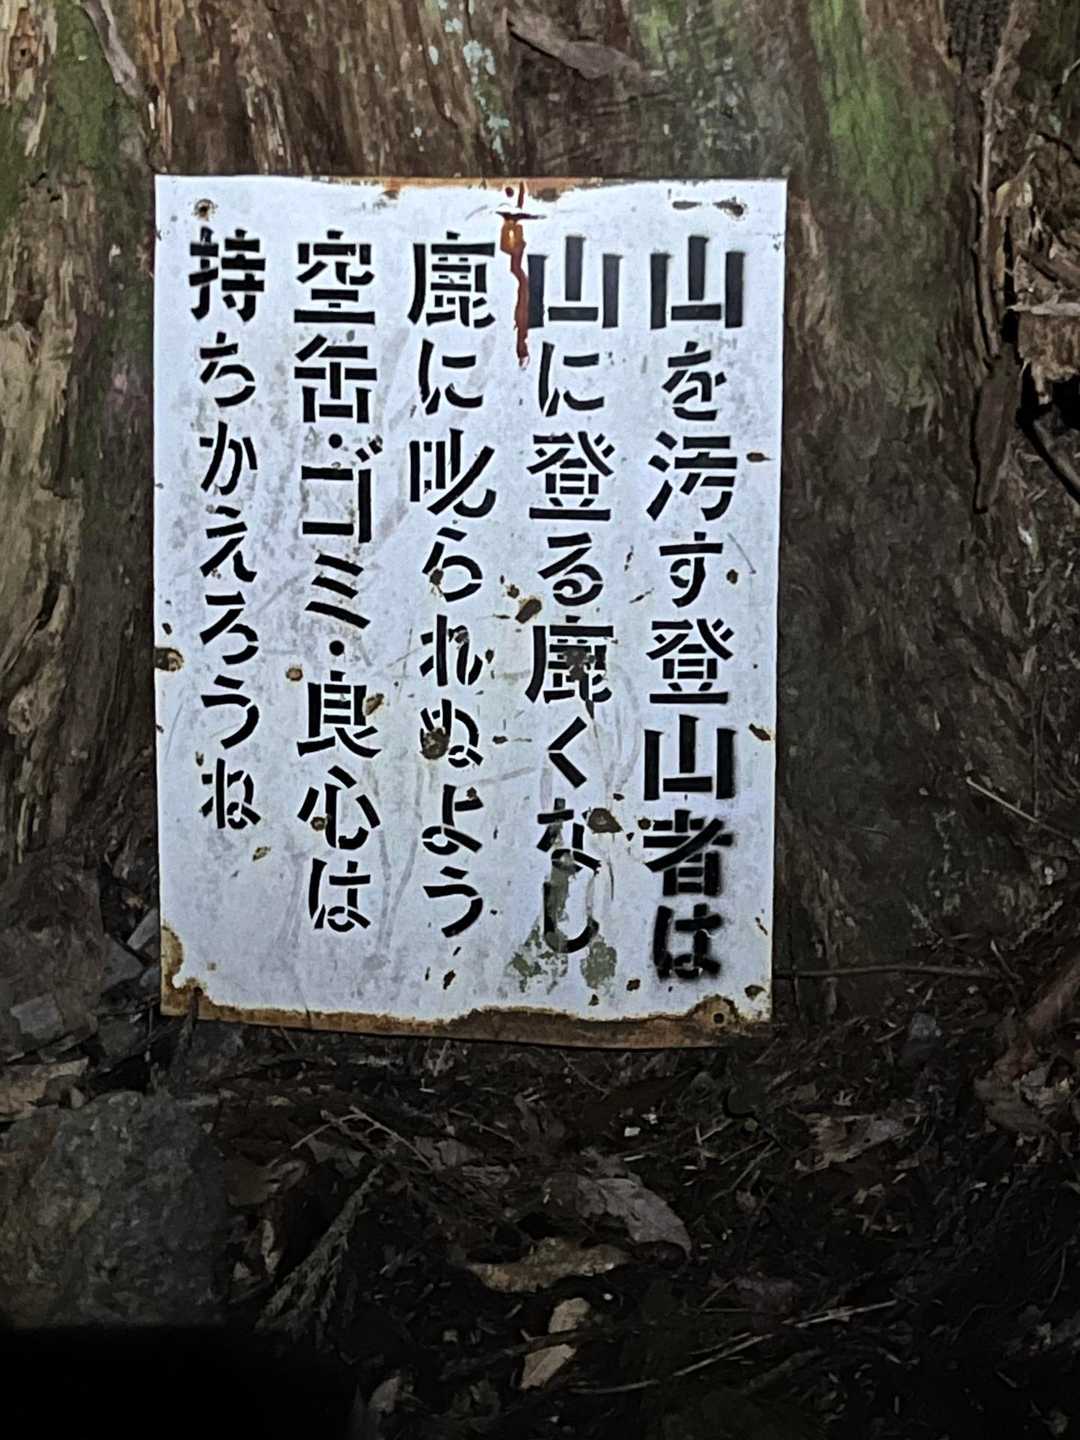 山を汚す登山者は
山に登る鹿くなし
鹿に叱られぬよう
空缶・ゴミ・良心は
持ちかえろうね